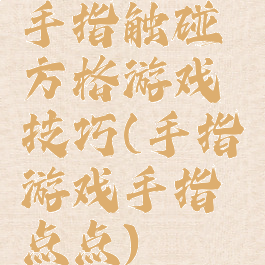 手指触碰
方格游戏
技巧(手指
游戏手指
点点)